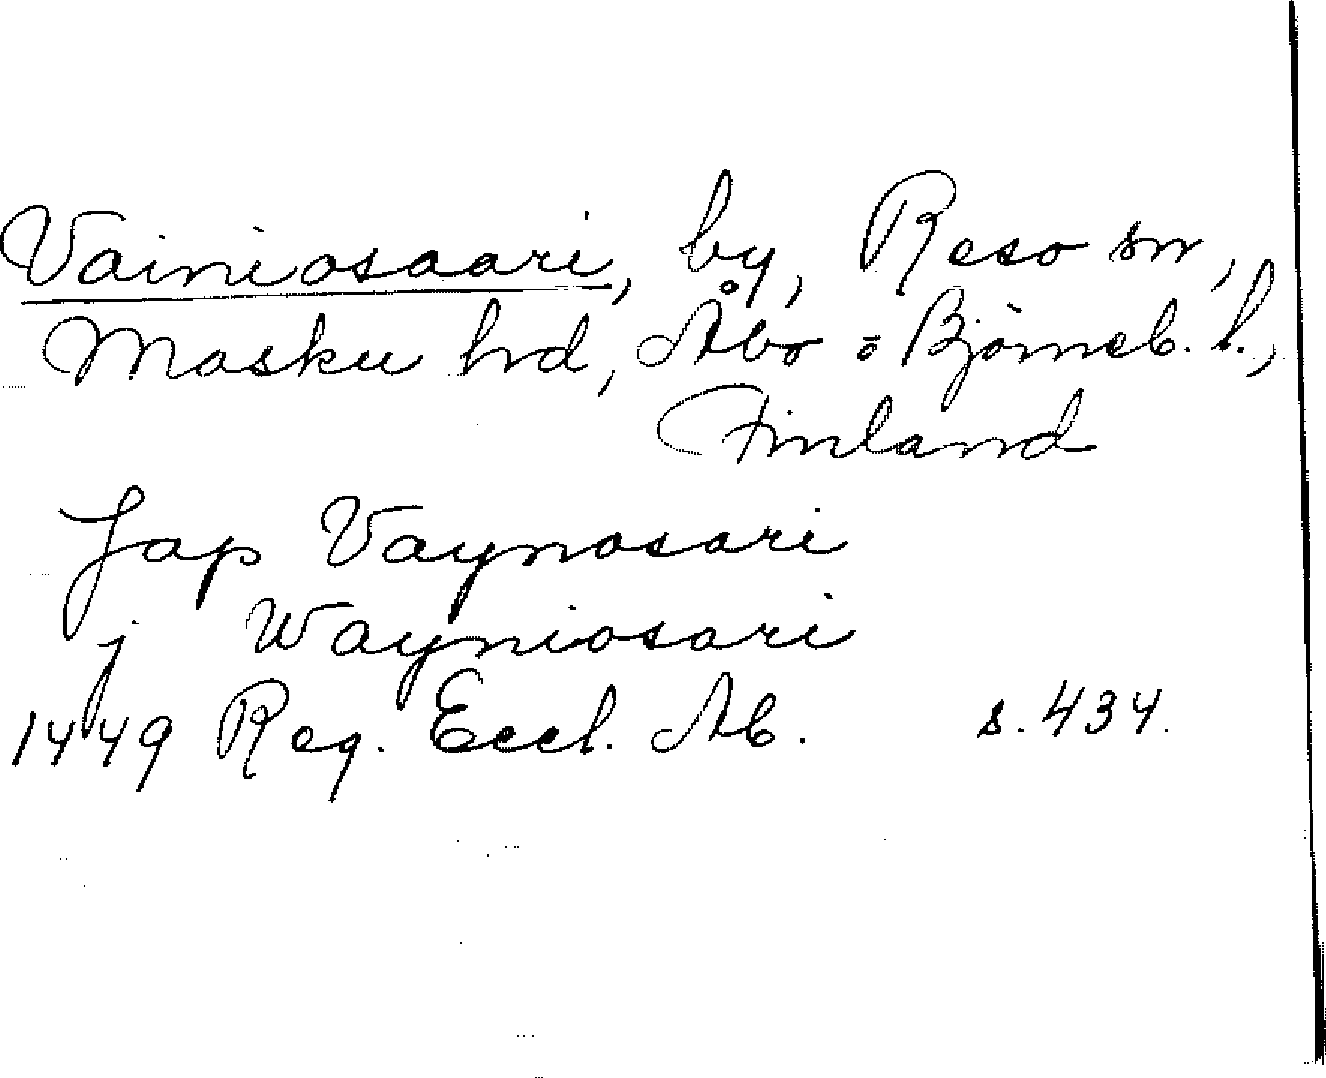 Vainiosaari, by, Reso sn,
Masku hd, Åbo o Björneb. l.,
Finland
Jap Vaynosari
j Wayniosari
1449 Reg. Eccl. Ab. s. 434.